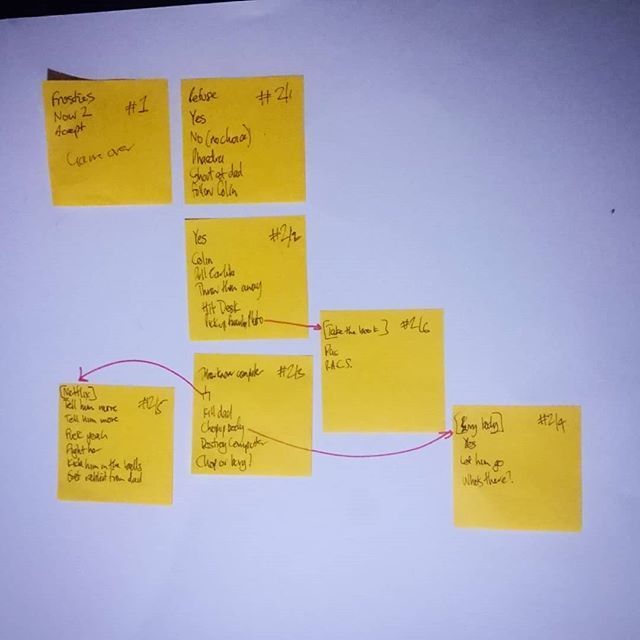 Frosties
#1
Now 2
Accept
Game over
Refuse
#2/1
Yes
No (no choice)
Phaedra
Ghost of dad
Follow Colin
Yes
#2/2
Colin
Pull Earlobe
Throw them away
Hit Desk
Pick up family Photo
[Take the book]
#2/6
Pac
P.A.C.S.
Throw tea over computer
#2/3
Kill dad
Chop up body
Destroy Computer
Chop or bury?
[Netflix]
#2/5
Tell him more
Tell him more
Fuck yeah
Fight her
Kick him in the balls
Get rabbit from dad
[Bury body]
#2/4
Yes
Let him go
Who's there?